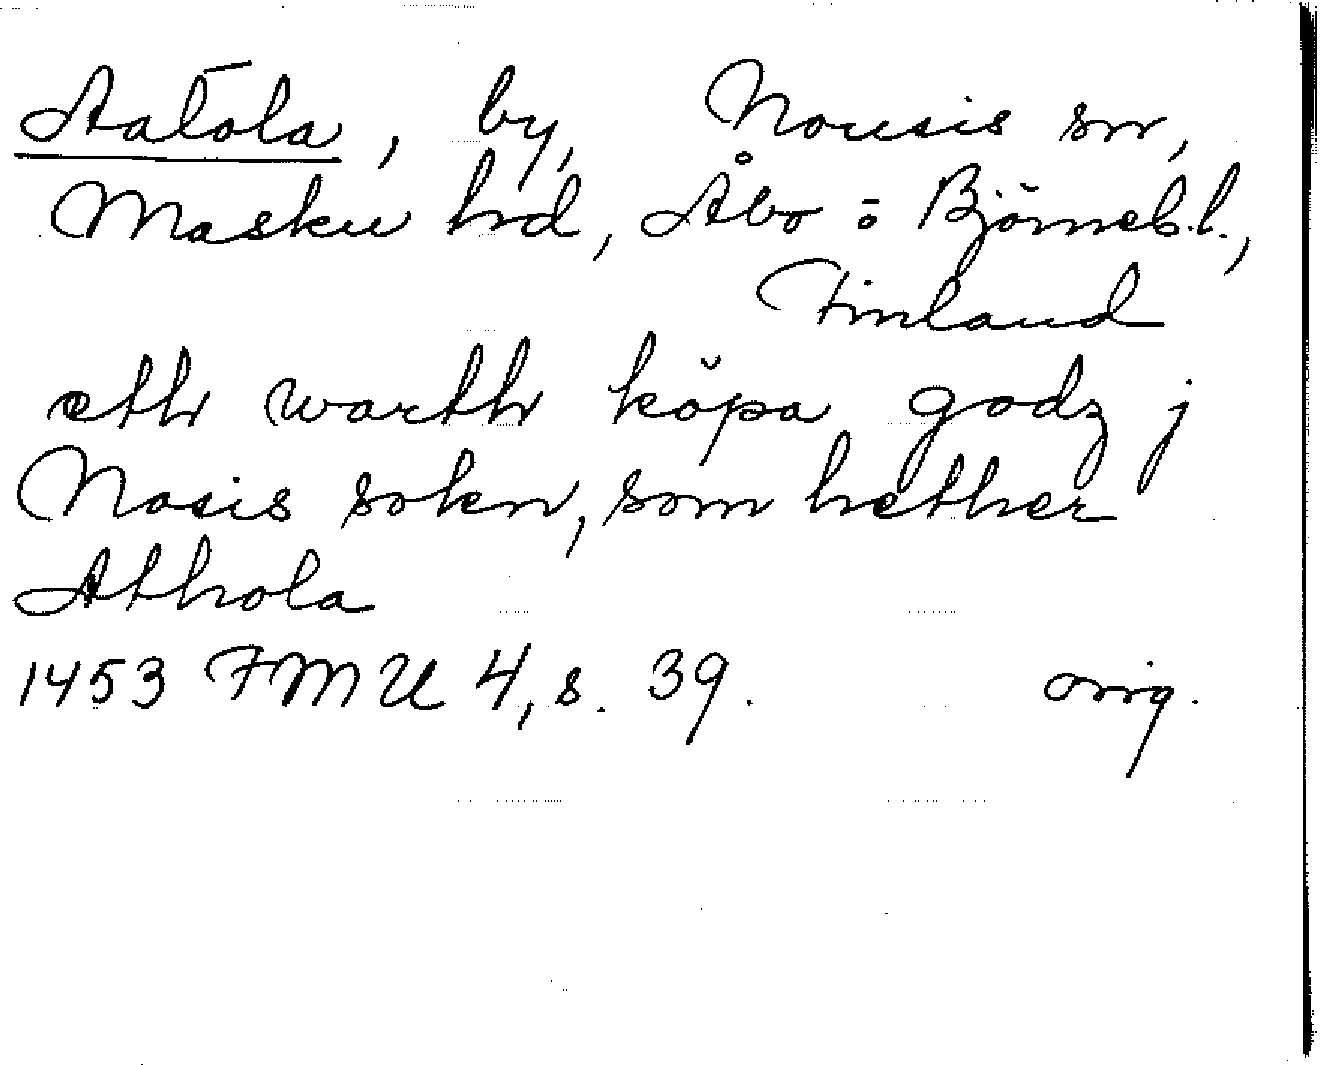 Aatola, by, Nousis sn,
Masku hrd, Åbo o Björneb.l.,
Finland
eth warth köpa godz j
Nosis sokn, som hether
Athola
1453 FMU 4, s. 39. orig.